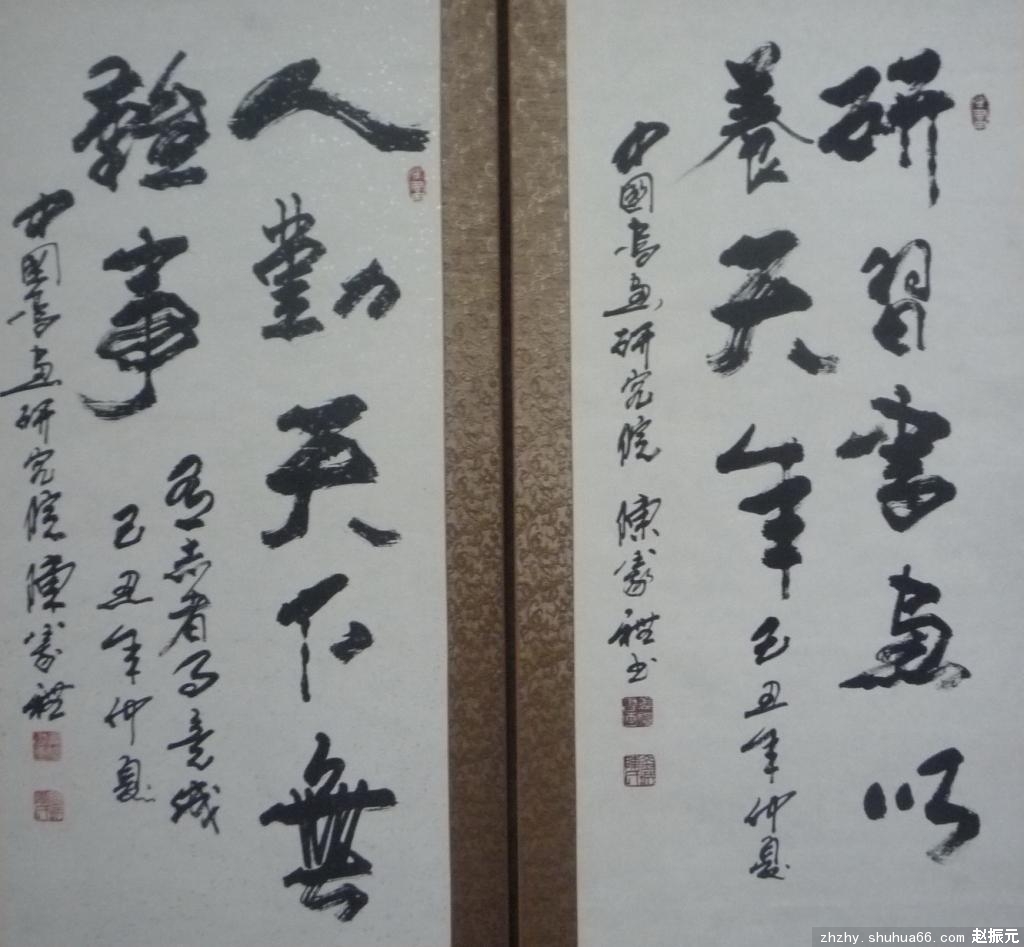 研習書畫以
養天年
己丑年仲夏
中國書畫研究院 陳家祺书
人勤天下無
難事
有志者事竟成
己丑年仲夏
中國書畫研究院陳家祺
zhzhy.shuhua66.com 赵振元